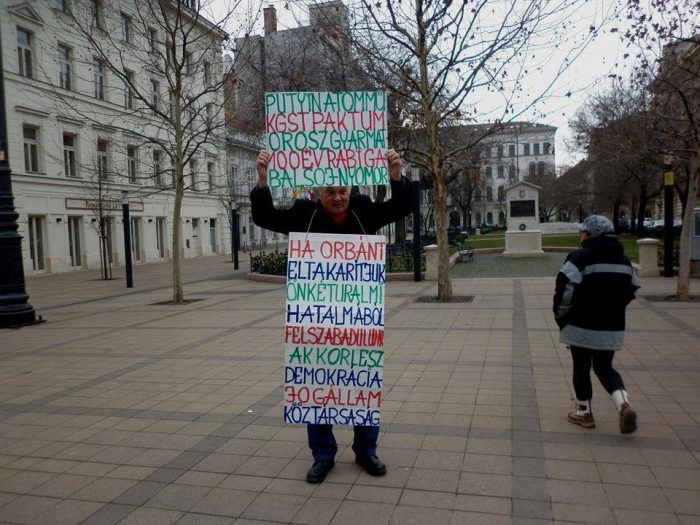 PUTYIN ATOMMU
KGST PAKTUM
OROSZ GYARMAT
100 ÉV RABIGA
BALSO J NYOMOR
HA ORBÁNT
ELTAKARÍTJUK
ÖNKÉTURALMI
HATALMÁBÓL
FELSZABADULUNK
AKKOR LESZ
DEMOKRÁCIA
JOGÁLLAM
KÖZTÁRSASÁG